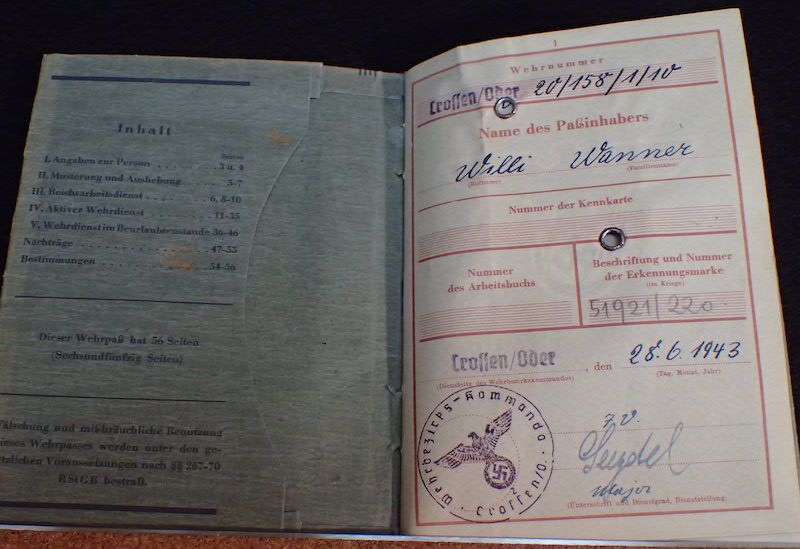 Inhalt
Seiten
I. Angaben zur Person . . . . 3 u. 4
II. Musterung und Aushebung . . . . 5-7
III. Reichsarbeitsdienst . . . . 6, 8-10
IV. Aktiver Wehrdienst . . . . 11-35
V. Wehrdienst im Beurlaubtenstande 36-46
Nachträge . . . . 47-53
Bestimmungen . . . . 54-56
Dieser Wehrpaß hat 56 Seiten
(Sechsundfünfzig Seiten)
älschung und mißbräuchliche Benutzung
ieses Wehrpasses werden unter den ge-
tzlichen Voraussetzungen nach §§ 267-70
RStGB bestraft.
1
Wehrnummer
Crossen/Oder 20/158/1/10
Name des Paßinhabers
Willi Wanner
(Rufname) (Familienname)
Nummer der Kennkarte
Nummer
des Arbeitsbuchs
Beschriftung und Nummer
der Erkennungsmarke
(im Kriege)
51921/220
Crossen/Oder, den 28.6.1943
(Dienststelle des Wehrbezirkskommandos) (Tag, Monat, Jahr)
Wehrbezirks-Kommando
Crossen/O.
2
Major
(Unterschrift und Dienstgrad, Dienststellung)